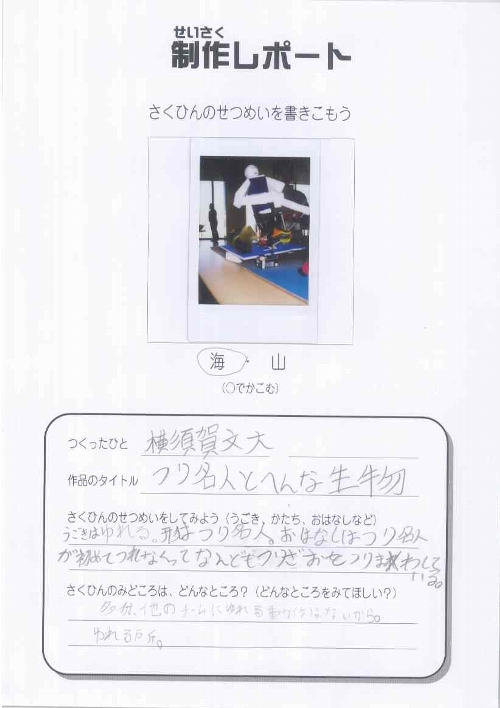 せいさく
制作レポート
さくひんのせつめいを書きこもう
海・山
(○でかこむ)
つくったひと 横須賀文大
作品のタイトル つり名人とへんな生物
さくひんのせつめいをしてみよう (うごき、かたち、おはなしなど)
うごきはゆれる。形はつり名人。おはなしはつり名人
が初めてつれなくってなんども つりざおをつりまわして
いる。
さくひんのみどころは、どんなところ? (どんなところをみてほしい?)
多分、他のチームにゆれる動作はないから。
ゆれる所。